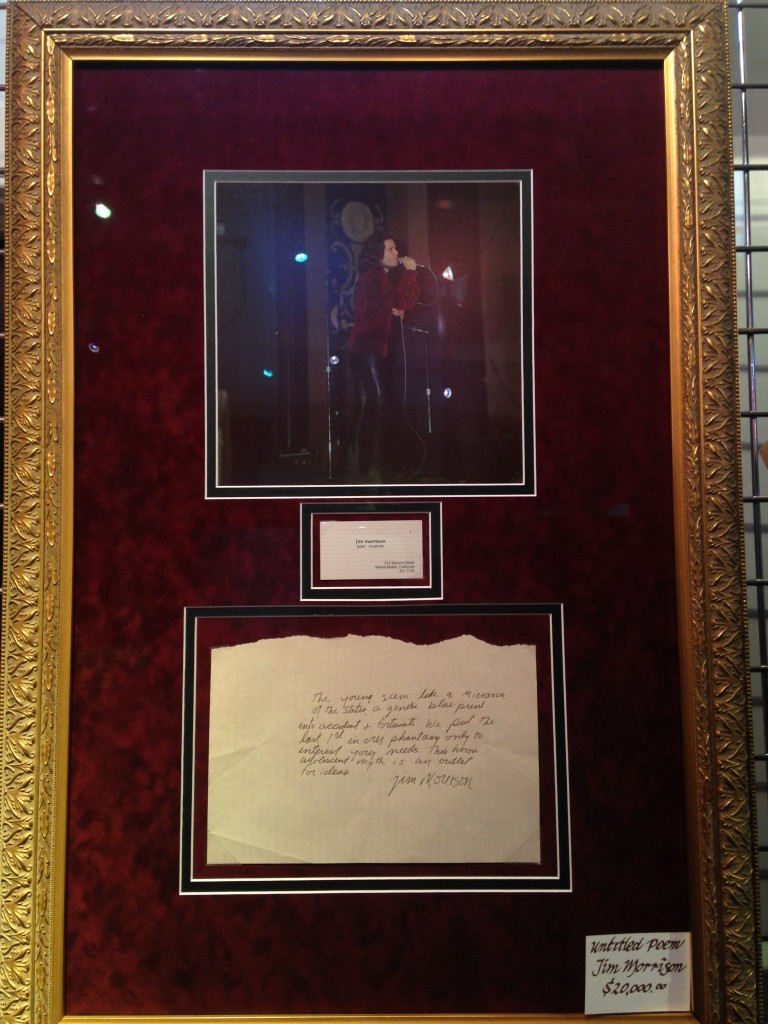 jim morrison
poet · musician
Street
Venice Beach, California
The young seem like a
of the States a genetic blue-print
into accident & fortunate We put the
last 1st in our phantasy only to
interest your needs. This heroic
adolescent myth is an outlet
for ideas
Jim Morrison
Untitled Poem
Jim Morrison
$20,000.00